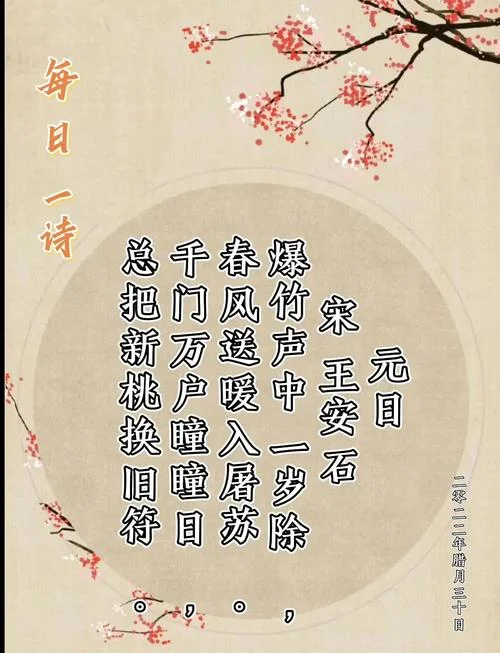 每日一诗
元日
宋 王安石
爆竹声中一岁除，
春风送暖入屠苏。
千门万户瞳瞳日，
总把新桃换旧符。
二零二二年腊月三十日